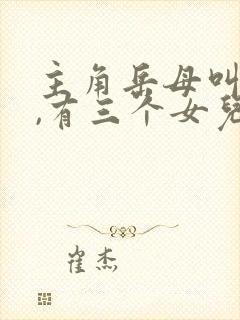 主角岳母叫
,有三个女兒
崔杰